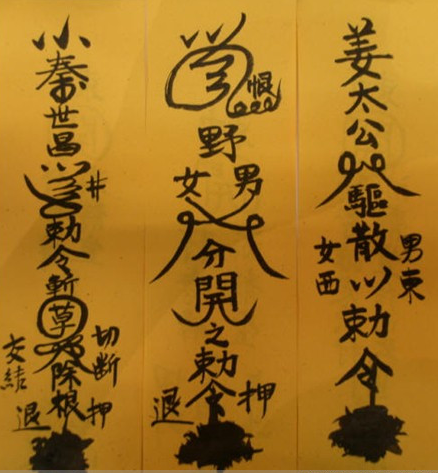 姜太公
驅散
男東
女西
勅令
恨
野
男
女
分開
之勅令
押
退
小秦世昌
井
勅令斬草除根
切断
交結
押
退